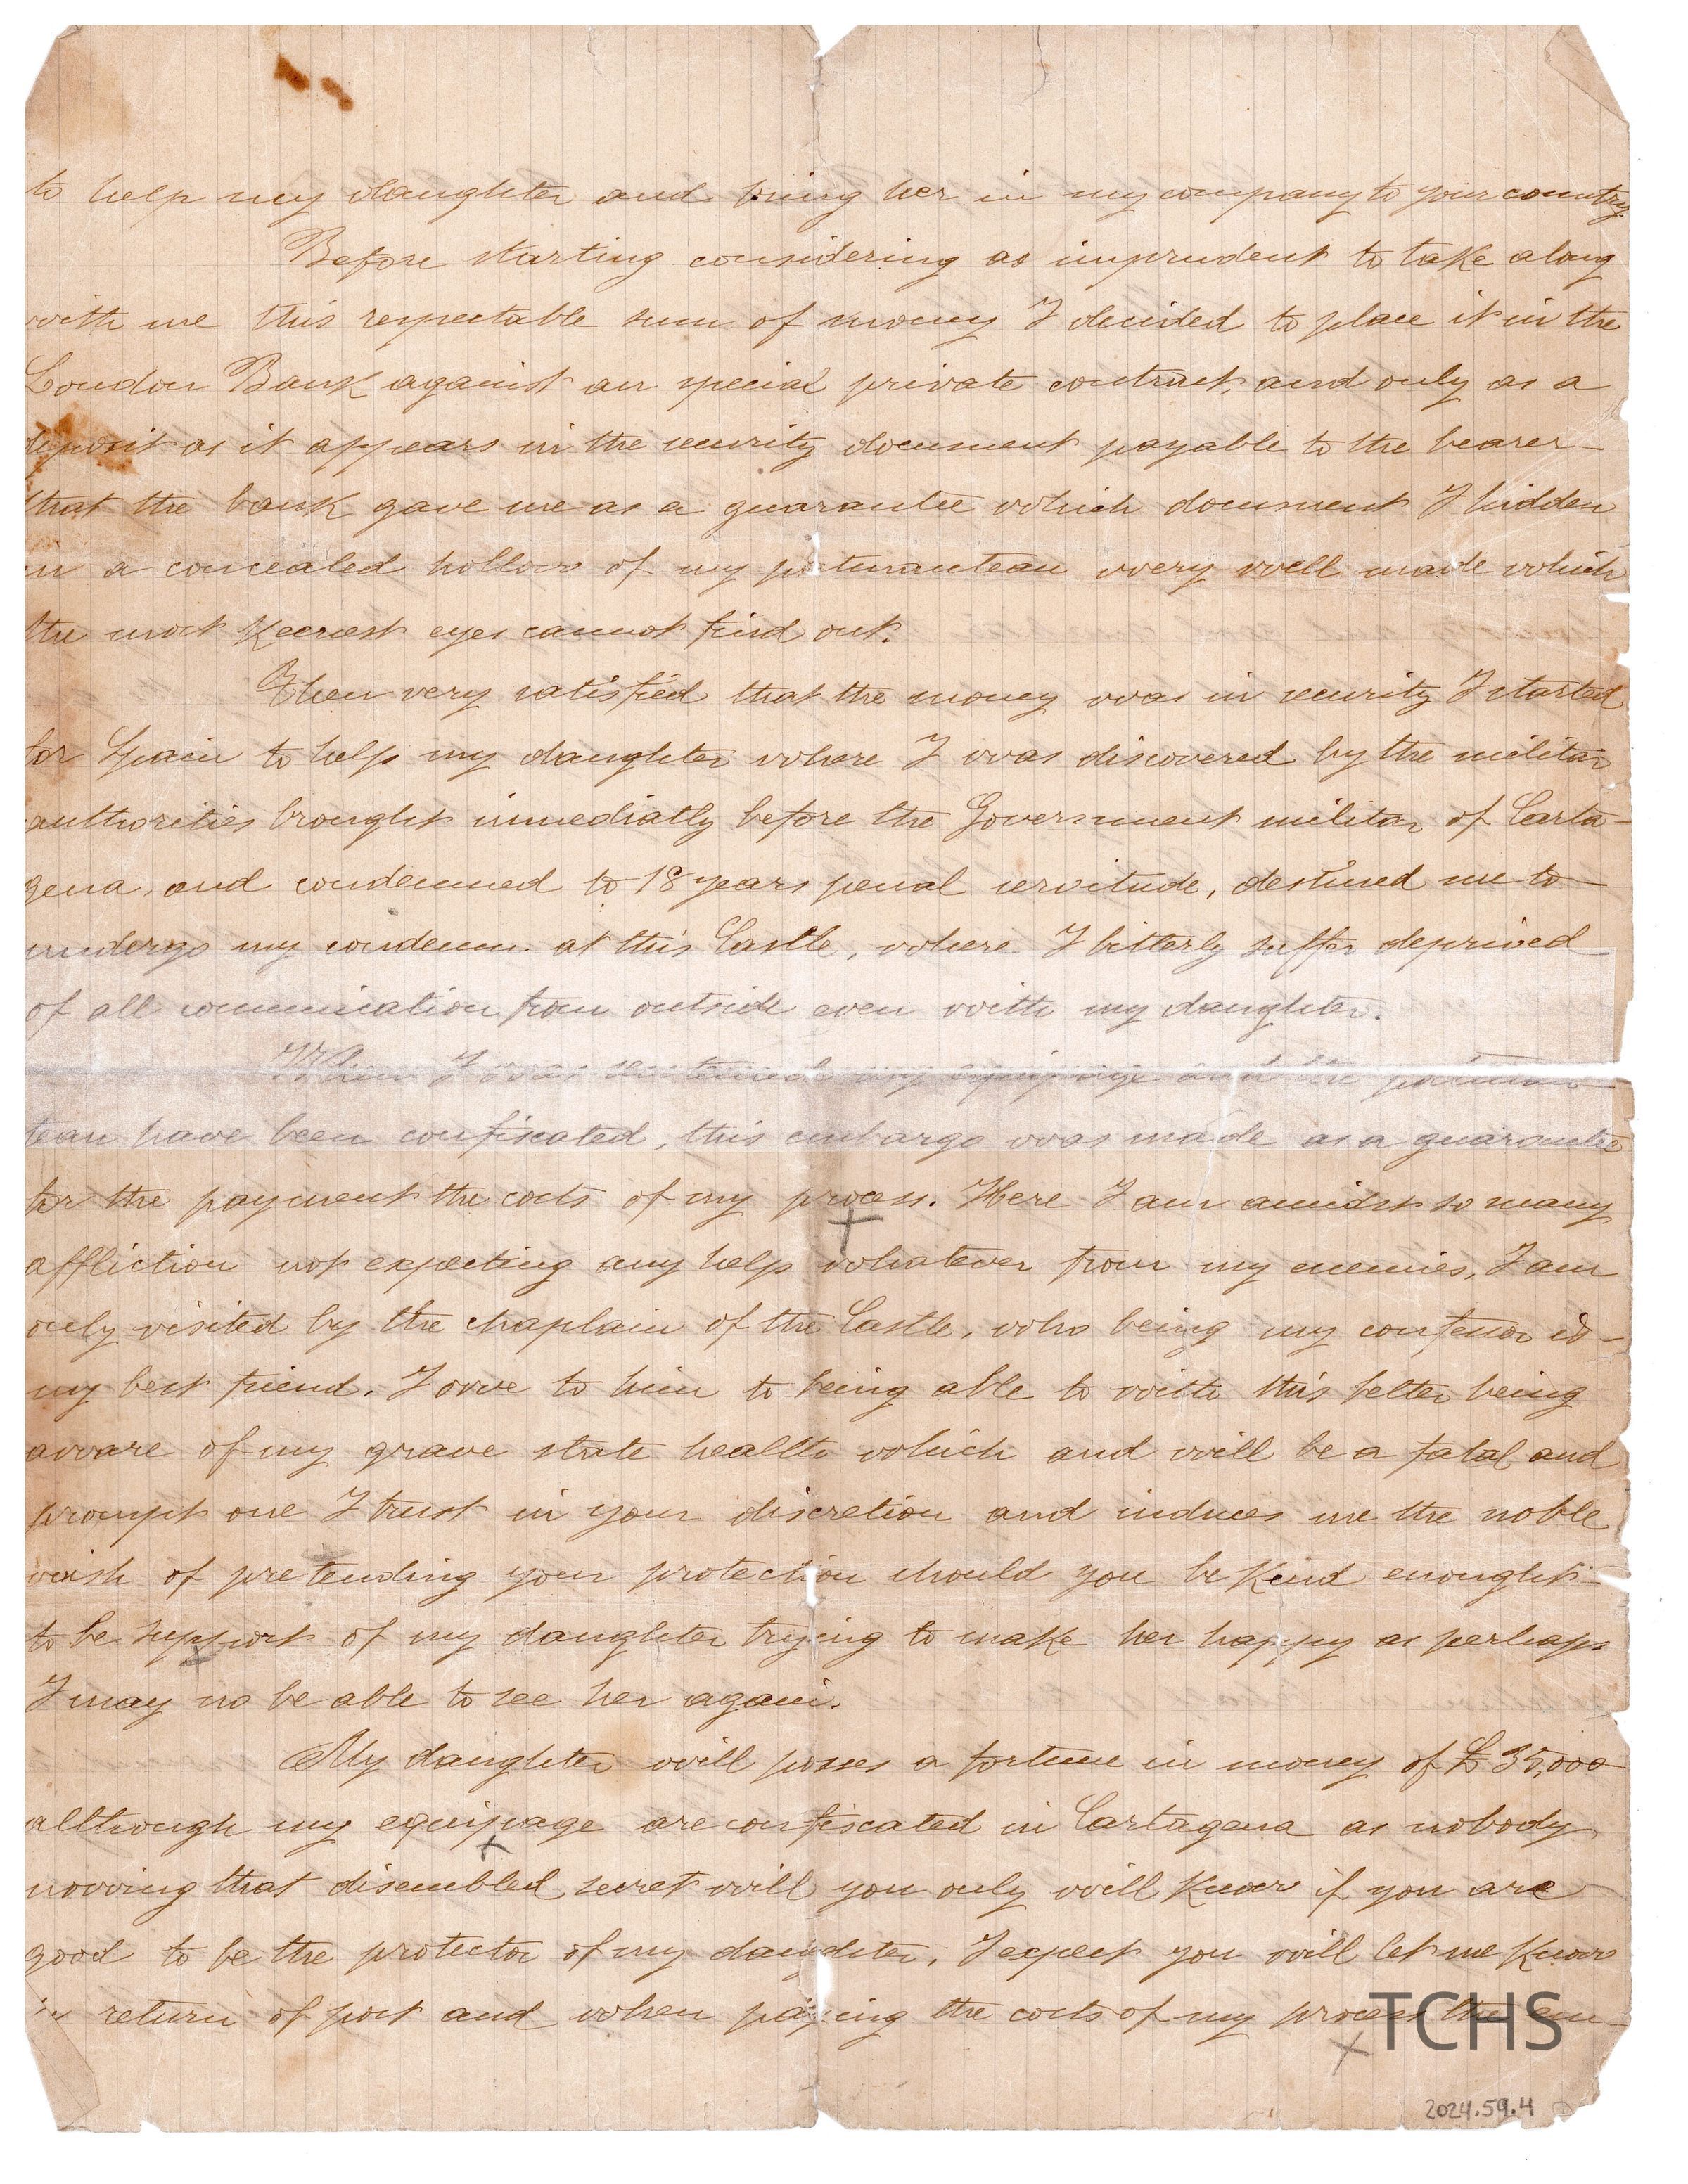 to help my daughter and bring her in my company to your country.
Before starting considering as imprudent to take along
with me this respectable sum of money I decided to place it in the
London Bank against an special private contract, and only as a
deposit as it appears in the security document payable to the bearer
that the bank gave me as a guarantee which document I hidden
in a concealed hollow of my portmanteau wery well made which
the most Keenest eyes cannot find out.
Then very satisfied that the money was in security I started
for Spain to help my daughter where I was discovered by the militar
authorities brought inmediatly before the Government militar of Carta-
gena, and condemned to 18 years penal servitude, destined me to
undergo my condemn at this Castle, where I bitterly suffer deprived
of all communication from outside even with my daughter.
When I was sentenced my equipage and the portman-
teau have been confiscated, this embargo was made as a guarantee
for the payment the costs of my process. Here I am amidst so many
affliction not expecting any help whatever from my enemies, I am
only visited by the chaplain of the Castle, who being my confessor is
my best friend. I owe to him to being able to writte this letter being
aware of my grave state health which and will be a fatal and
prompt one I trust in your discretion and induces me the noble
wish of pretending your protection should you be Kind enought
to be support of my daughter trying to make her happy as perhaps
I may no be able to see her again.
My daughter will posses a fortune in money of £ 35,000
although my equipage are confiscated in Cartagena as nobody
nowing that disembled secret will you only will Know if you are
good to be the protector of my daughter, I expect you will let me Know
in return of post and when paying the costs of my process the em-
TCHS
2024.59.4